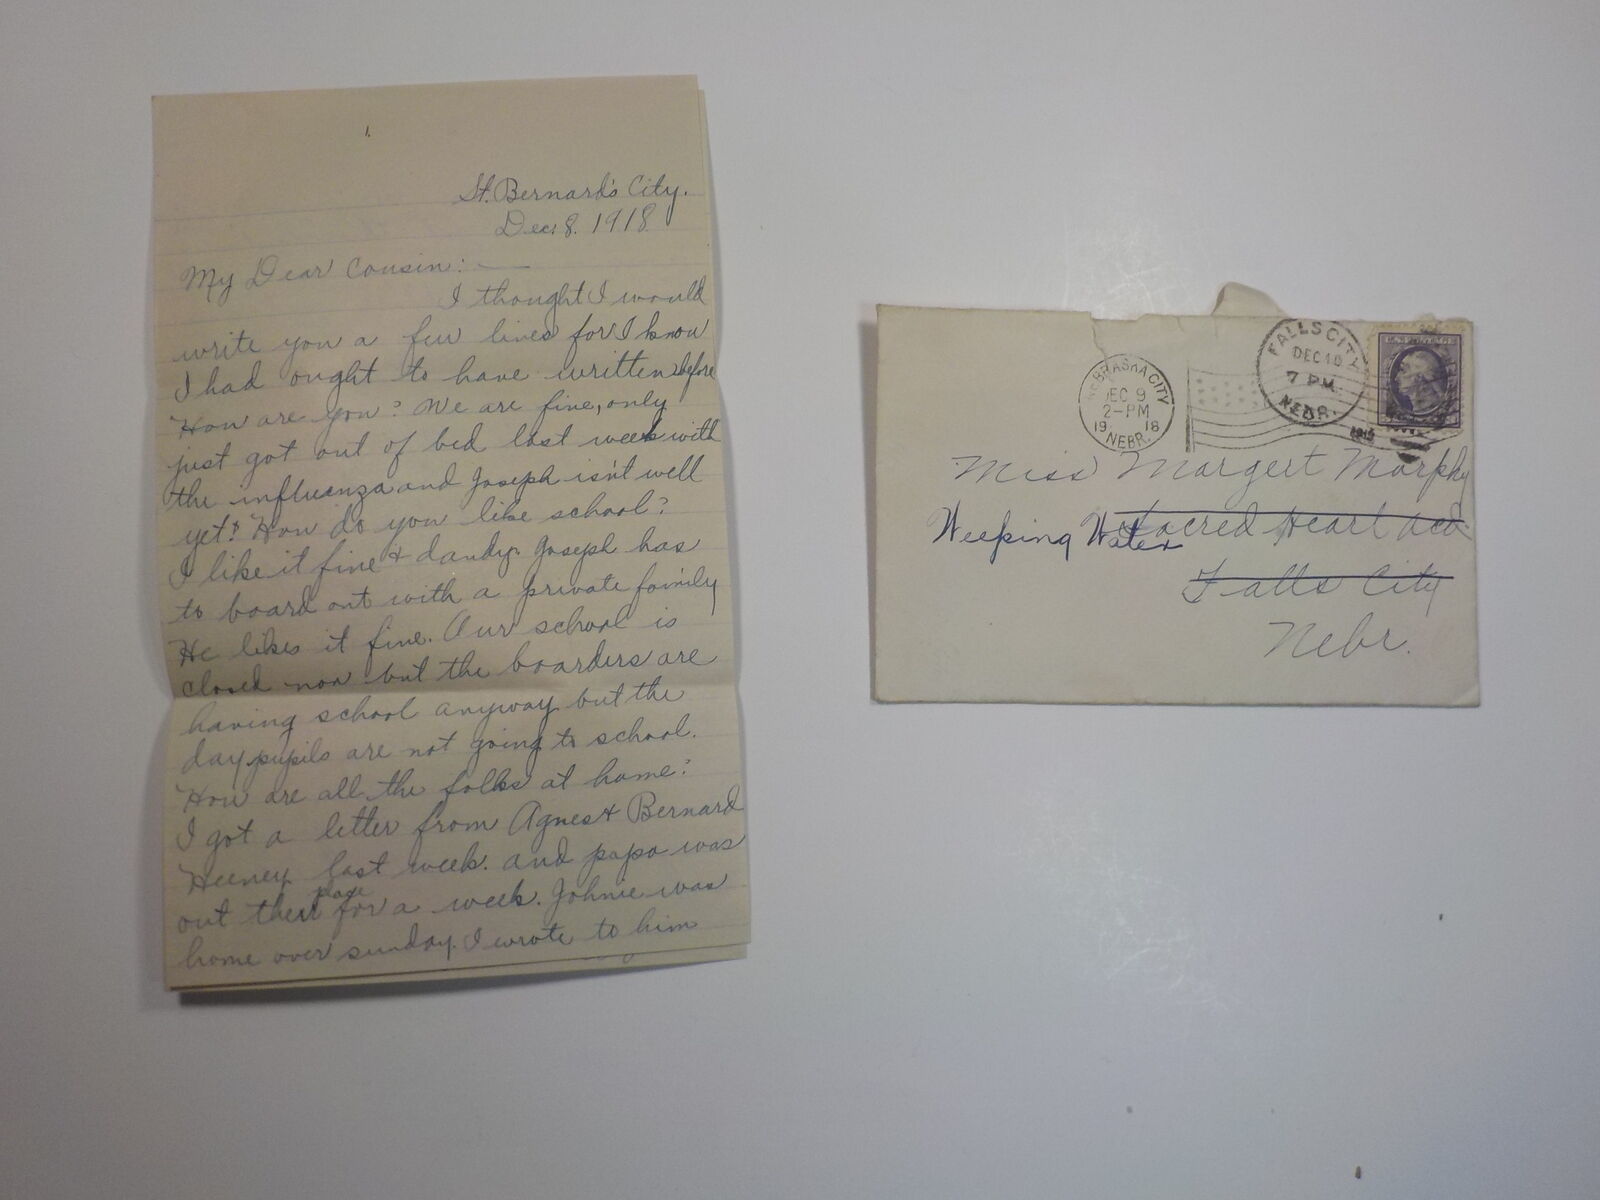 1.
St. Bernard's City.
Dec. 8. 1918
My Dear Cousin:
I thought I would
write you a few lines for I know
I had ought to have written before
How are you? We are fine, only
just got out of bed last week with
the influenza and Joseph isn't well
yet? How do you like school?
I like it fine & dandy. Joseph has
to board out with a private family
He likes it fine. Our school is
closed now but the boarders are
having school anyway but the
day pupils are not going to school.
How are all the folks at home?
I got a letter from Agnes & Bernard
Heeney last week. and papa was
out their place for a week. Johnie was
home over sunday. I wrote to him
NEBRASKA CITY
DEC 9
2-PM
1918
NEBR.
FALLS CITY
DEC 10
7 PM
NEBR.
1918
Miss Margert Murphy
Sacred Heart Acd.
Weeping Water
Falls City
Nebr.